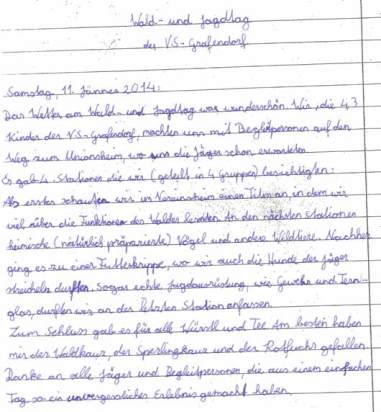 Wald- und Jagdtag
der VS-Grafendorf
Samstag, 11. Jänner 2014:
Das Wetter am Wald- und Jagdtag war wunderschön. Wir, die 43
Kinder der VS-Grafendorf, machten uns mit Begleitpersonen auf den
Weg zum Vereinsheim, wo uns die Jäger schon erwarteten.
Es gab 4 Stationen die wir (geteilt in 4 Gruppen) besichtigten:
Als erstes schauten wir im Vereinsheim einen Film an, in dem wir
viel über die Funktionen des Waldes lernten. An den nächsten Stationen
heimische (natürlich präparierte) Vögel und andere Wildtiere. Nachher
ging es zu einer Futterkrippe, wo wir auch die Hunde der Jäger
streicheln durften. Sogar echte Jagdausrüstung, wie Gewehr und Fern-
glas, durften wir an der letzten Station anfassen.
Zum Schluss gab es für alle Würstl und Tee. Am besten haben
mir der Waldkauz, der Sperlingkauz und der Rotfuchs gefallen.
Danke an alle Jäger und Begleitpersonen, die aus einem einfachen
Tag so ein unvergessliches Erlebnis gemacht haben.